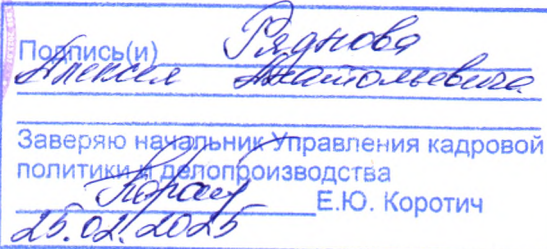 Подпись(и) Ряднова
Алексея Анатольевича
Заверяю начальник Управления кадровой
политики и делопроизводства
Е.Ю. Коротич
25.02.2025